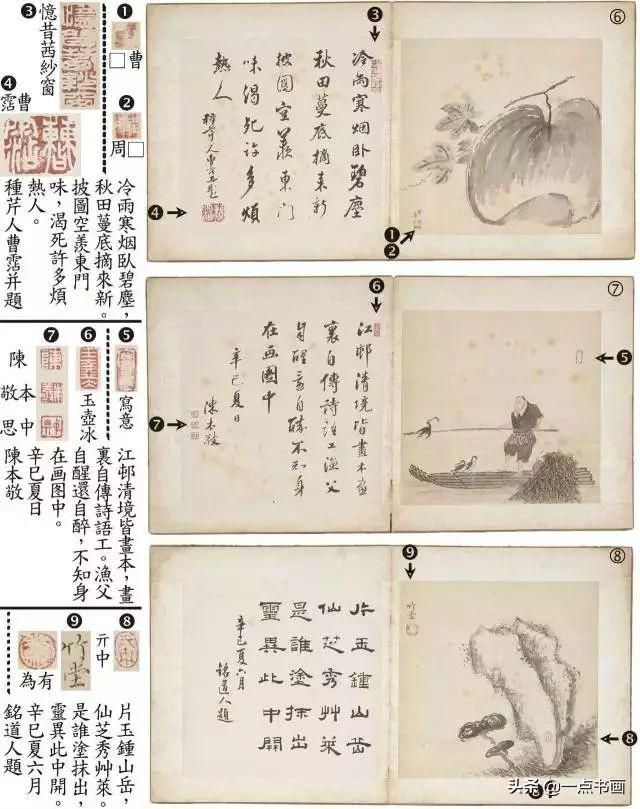 ❶
□曹
❷
周□
❸
憶昔茜紗窗
❹
曹霑
冷雨寒烟臥碧塵，
秋田蔓底摘來新。
披圖空羨東門
味，渴死許多煩
熱人。
種芹人曹霑并題
❸
冷雨寒烟卧碧塵
秋田蔓底摘来新
披圖空羡東門
味渴死许多煩
熱人
種芹人曹霑并題
❹
⑥
❶
❷
❺
寫意
❻
玉壺冰
❼
陳本敬
中思
江邨清境皆畫本，畫
裏自傳詩語工。漁父
自醒還自醉，不知身
在画图中。
辛巳夏日
陳本敬
❻
江邨清境皆畫本畫
裏自傳詩語工漁父
自醒還自醉不知身
在画圖中
辛巳夏日
陳本敬
❼
⑦
❺
❽
亓中
❾
竹堂
有為
片玉鍾山岳，
仙芝秀艸萊。
是誰塗抹出，
靈異此中開。
辛巳夏六月
銘道人題
片玉鍾山岳
仙芝秀艸萊
是誰塗抹出
靈異此中開
辛巳夏六月
銘道人題
⑧
❾
竹堂
❽
❽
头条 @一点书画